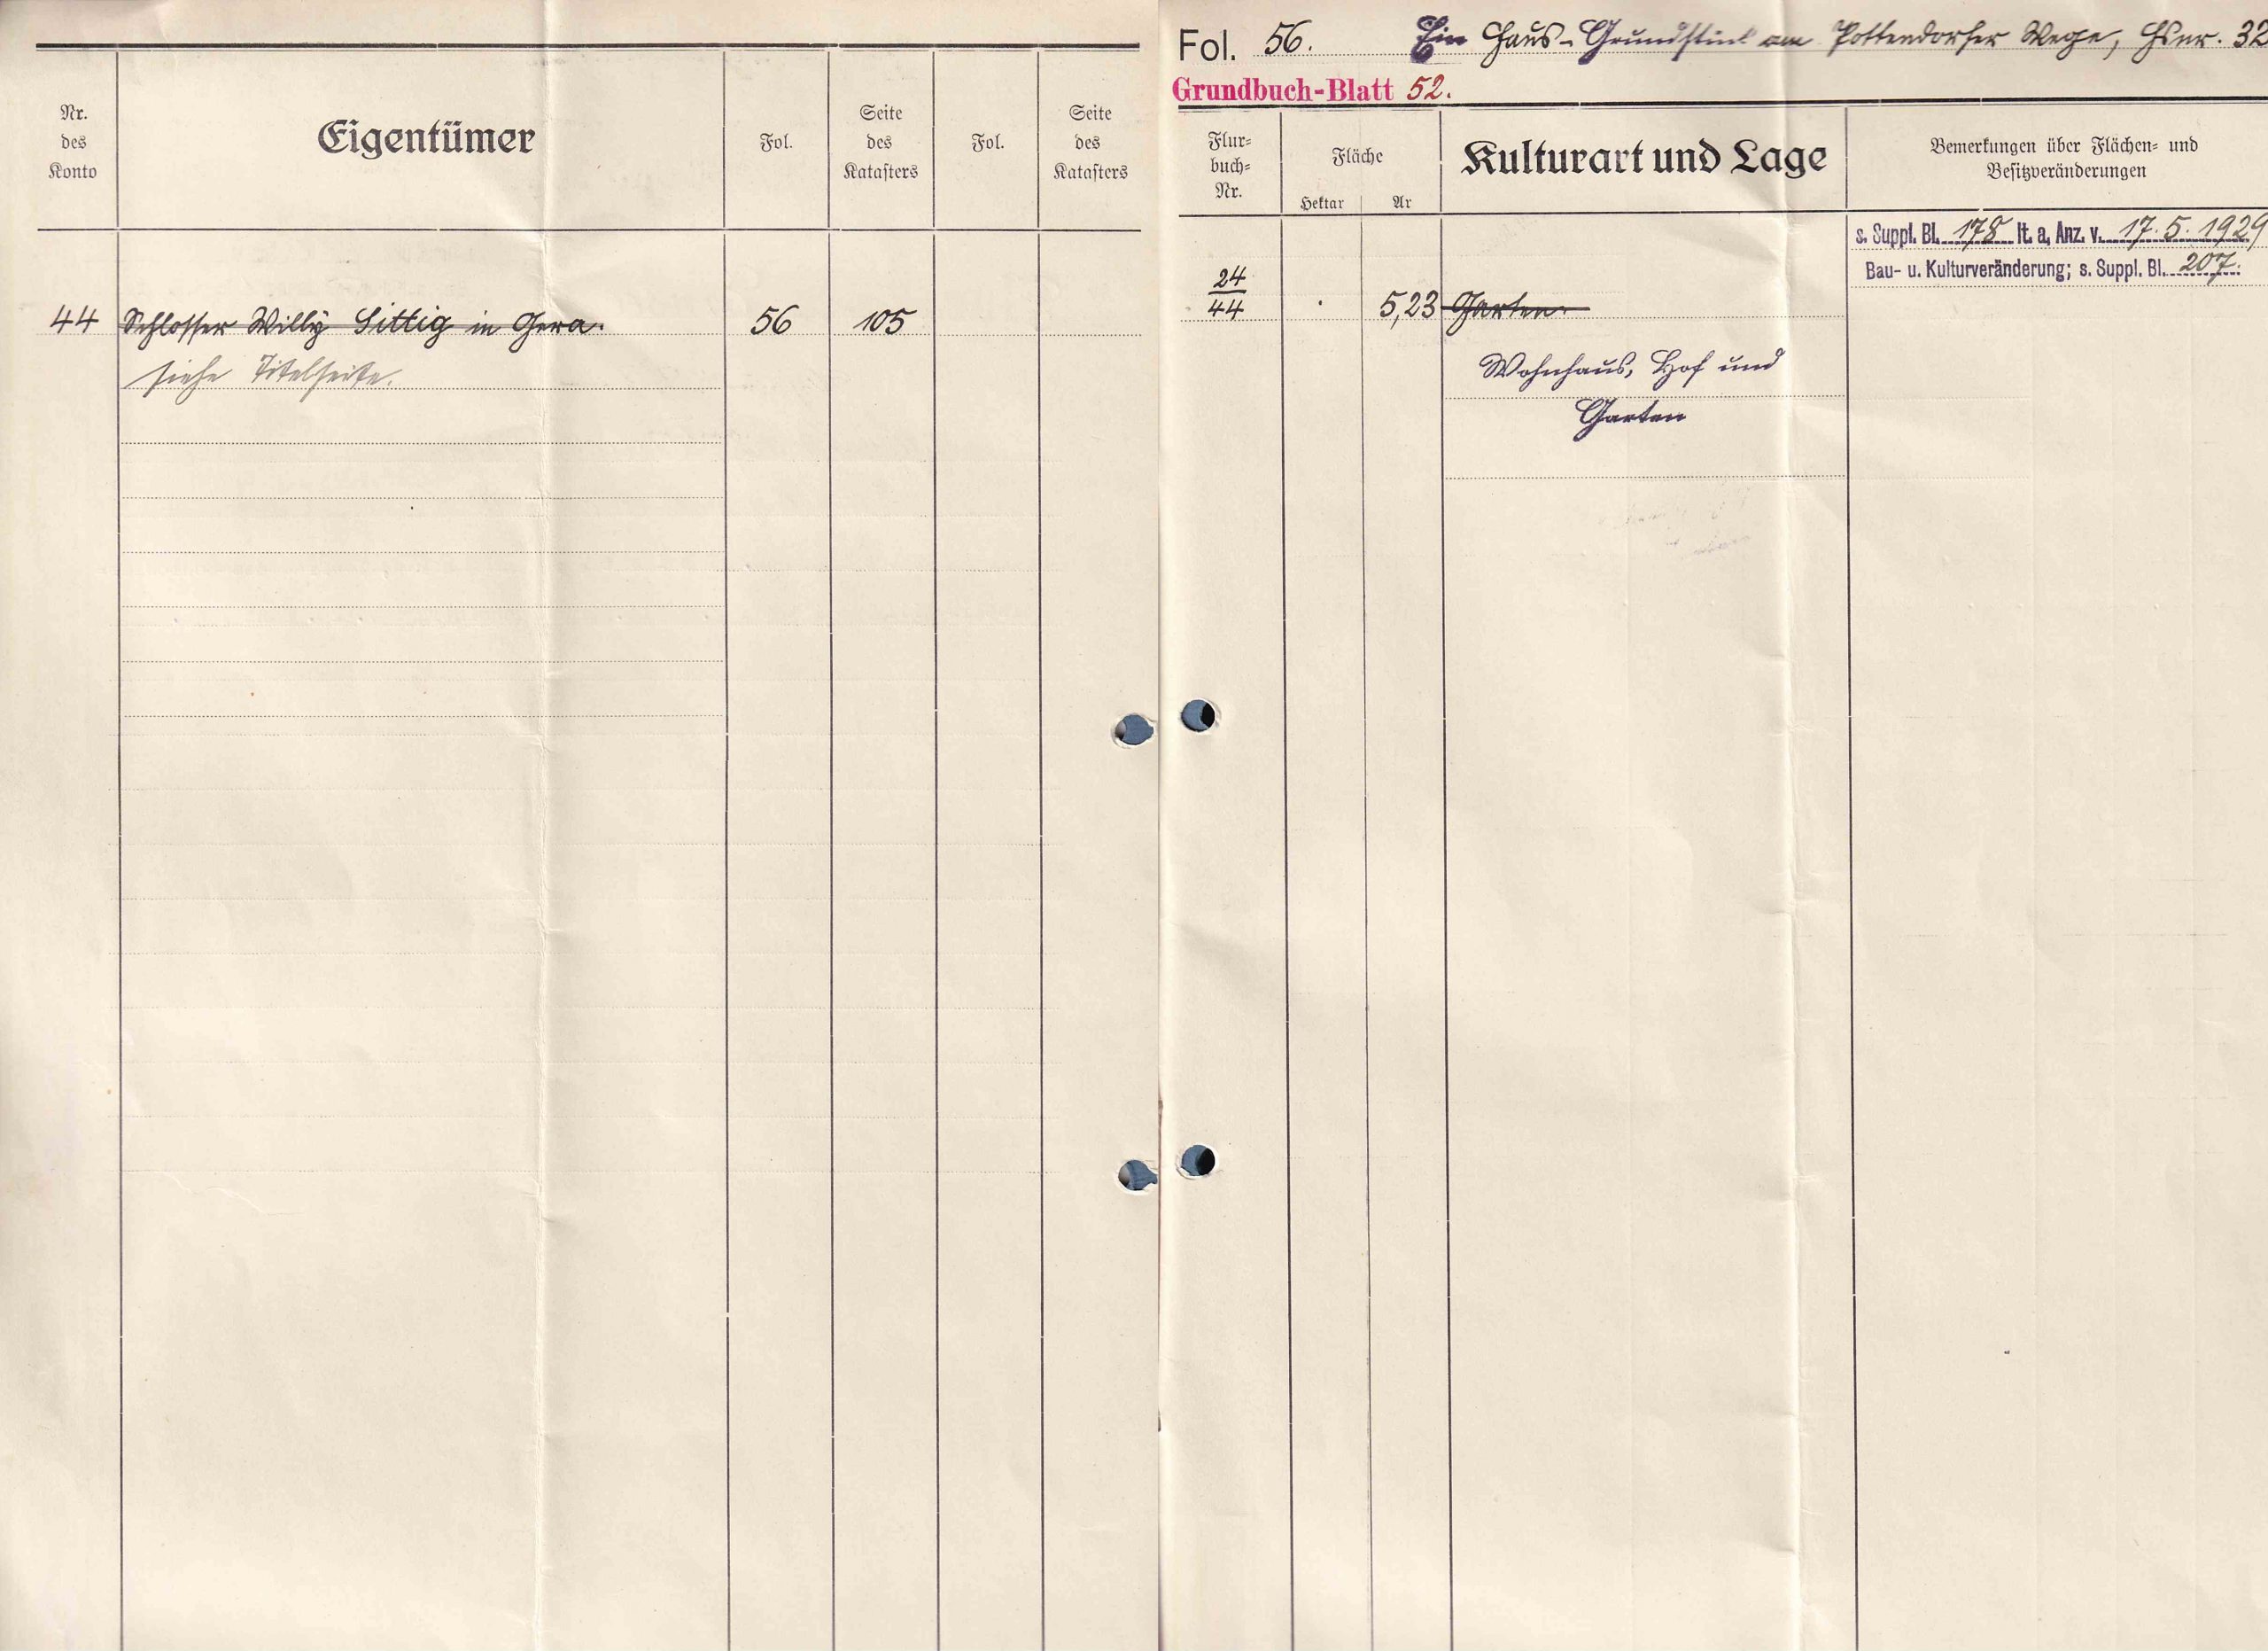 Nr.
des
Konto
Eigentümer
Fol.
Seite
des
Katasters
Fol.
Seite
des
Katasters
44 Schlosser Willy Sittig in Gera. 56 105
siehe Titelseite.
Fol. 56. Ein Haus-Grundstück am Pottendorfer Wege, Hsnr. 32
Grundbuch-Blatt 52.
Flur-
buch-
Nr.
Fläche
Hektar Ar
Kulturart und Lage
Bemerkungen über Flächen- und
Besitzveränderungen
s. Suppl. Bl. 178 lt. a. Anz. v. 17.5.1929
Bau- u. Kulturveränderung; s. Suppl. Bl. 207.
24
44 . 5,23 Garten.
Wohnhaus, Hof und
Garten